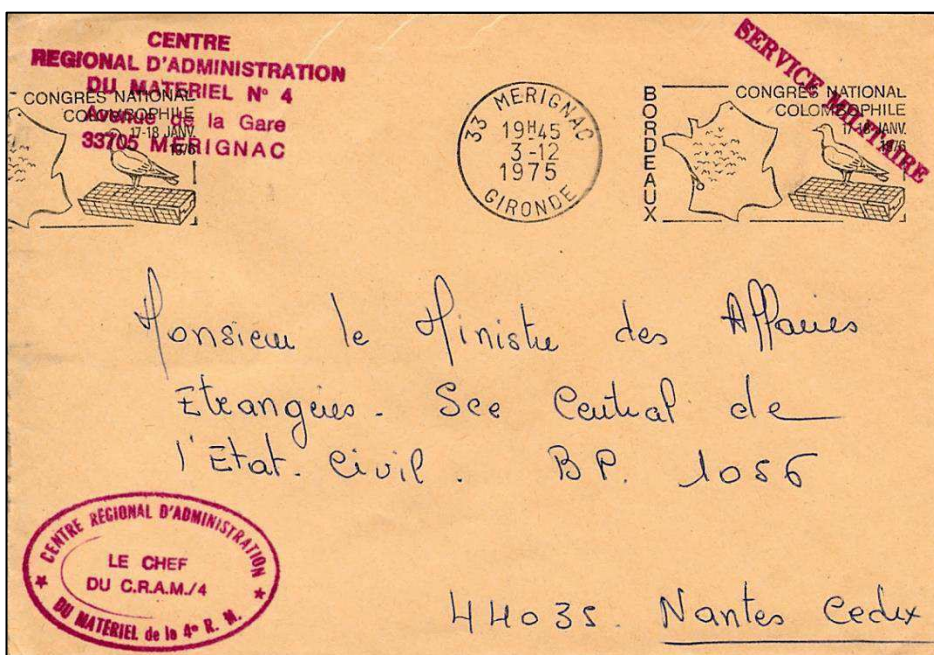 CENTRE
REGIONAL D'ADMINISTRATION
DU MATERIEL N° 4
Avenue de la Gare
33705 MERIGNAC
CONGRES NATIONAL
COLOMBOPHILE
17-18 JANV.
1976
33 MERIGNAC
19H45
3-12
1975
GIRONDE
BORDEAUX
CONGRES NATIONAL
COLOMBOPHILE
17-18 JANV.
1976
SERVICE MILITAIRE
Monsieur le Ministre des Affaires
Etrangères. Sce Central de
l'Etat. Civil. BP. 1056
44035. Nantes Cedex
CENTRE REGIONAL D'ADMINISTRATION
LE CHEF
DU C.R.A.M./4
DU MATÉRIEL de la 4e R. M.